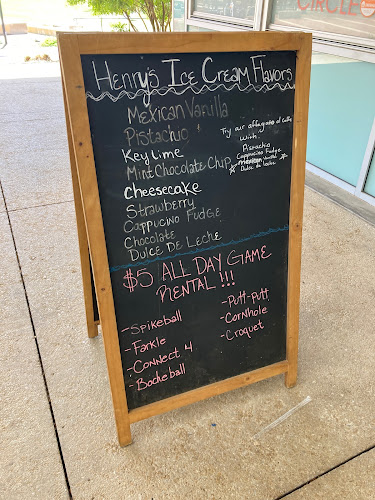 CIRCLE
Henry's Ice Cream Flavors
Mexican Vanilla
Pistachio
Key Lime
Mint Chocolate Chip
Cheesecake
Strawberry
Cappucino Fudge
Chocolate
Dulce De Leche
Try our affogato & coffee
with:
Pistachio
Cappucino Fudge
Mexican Vanilla
Dulce de Leche
$5 All Day Game
Rental !!!
- Spikeball
- Farkle
- Connect 4
- Bocceball
- Putt-putt
- Cornhole
- Croquet